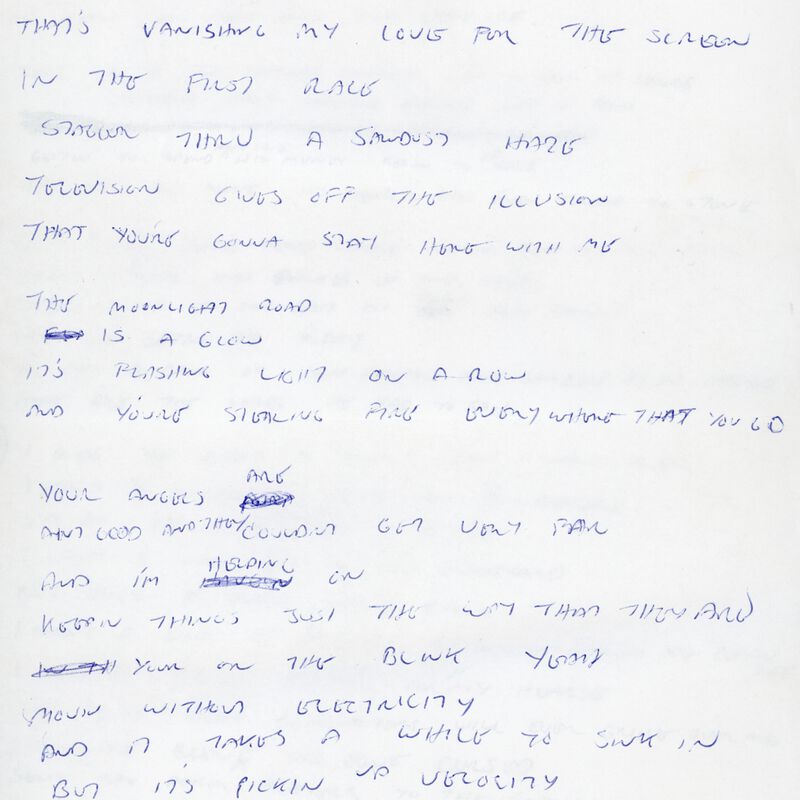 THAT'S VANISHING MY LOVE FOR THE SCREEN
IN THE FIRST RACE
STAGGER THRU A SAWDUST HAZE
TELEVISION GIVES OFF THE ILLUSION
THAT YOU'RE GONNA STAY HERE WITH ME
THE MOONLIGHT ROAD
IS A GLOW
IT'S FLASHING LIGHT ON A ROW
AND YOU'RE STEALING FIRE EVERYWHERE THAT YOU GO
YOUR ANGELS ARE
AINT GOOD AND THEY COULDN'T GET VERY FAR
AND I'M HELPING ON
KEEPIN THINGS JUST THE WAY THAT THEY ARE
YOUR ON THE BLINK YEAH
MOVIN WITHOUT ELECTRICITY
AND IT TAKES A WHILE TO SINK IN
BUT IT'S PICKIN UP VELOCITY